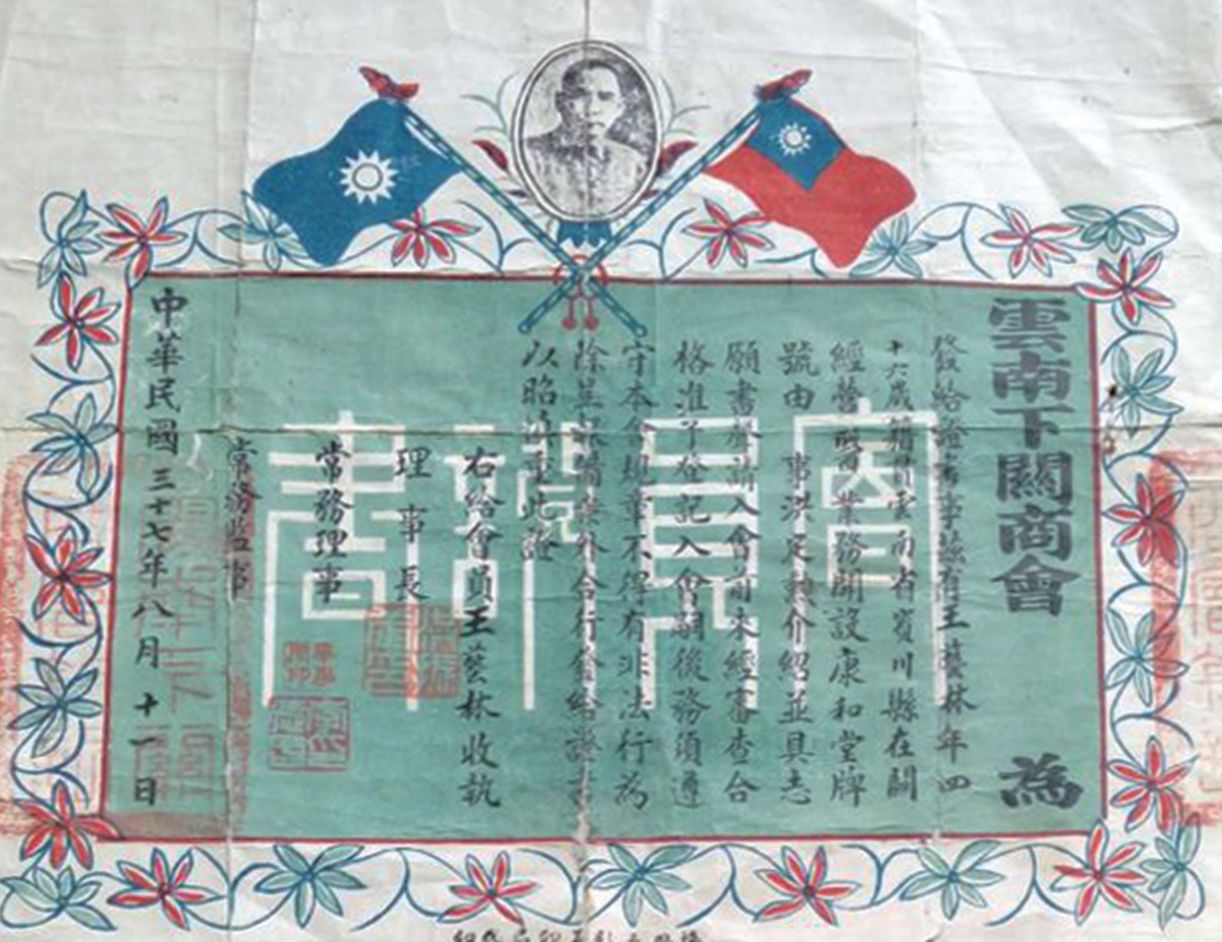 雲南下關商會 為
發給證書事縣有王藝林年四
十六歲籍貫雲南省賓川縣在關
經營醫業務開設康和堂牌
號由 事洪足勳介紹並具志
願書聲請入會前來經審查合
格准予登記入會嗣後務須遵
守本會規章不得有非法行為
除呈報備案外合行發給證書
以昭慎重此證
右給會員王藝林收執
理事長
常務理事
常務監事
中華民國三十七年八月十一日
會員證書